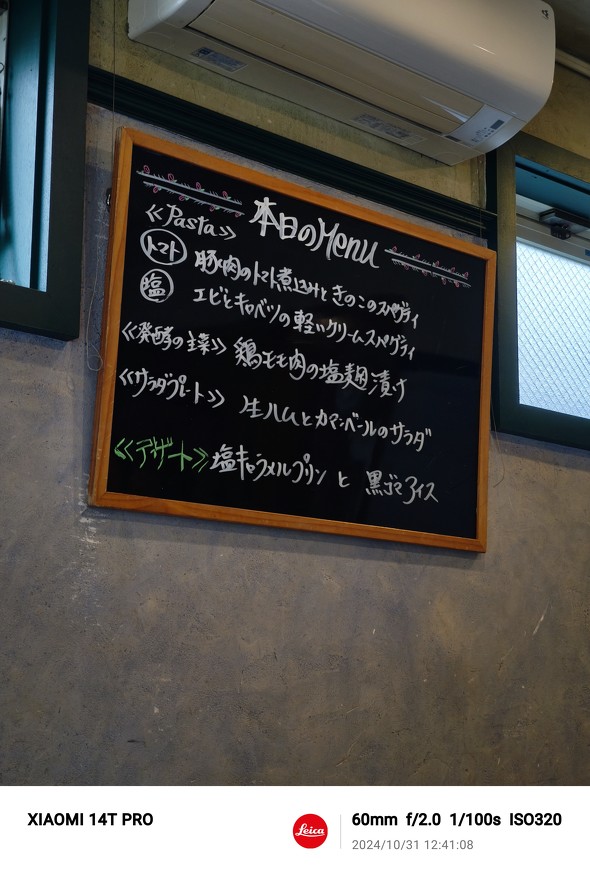 本日のMenu
《Pasta》
トマト 豚肉のトマト煮込みときのこのスパゲティ
塩 エビとキャベツの軽いクリームスパゲティ
《発酵の主菜》 鶏もも肉の塩麹漬け
《サラダプレート》 生ハムとカマンベールのサラダ
《デザート》 塩キャラメルプリン と 黒ゴマアイス
XIAOMI 14T PRO
Leica
60mm f/2.0 1/100s ISO320
2024/10/31 12:41:08